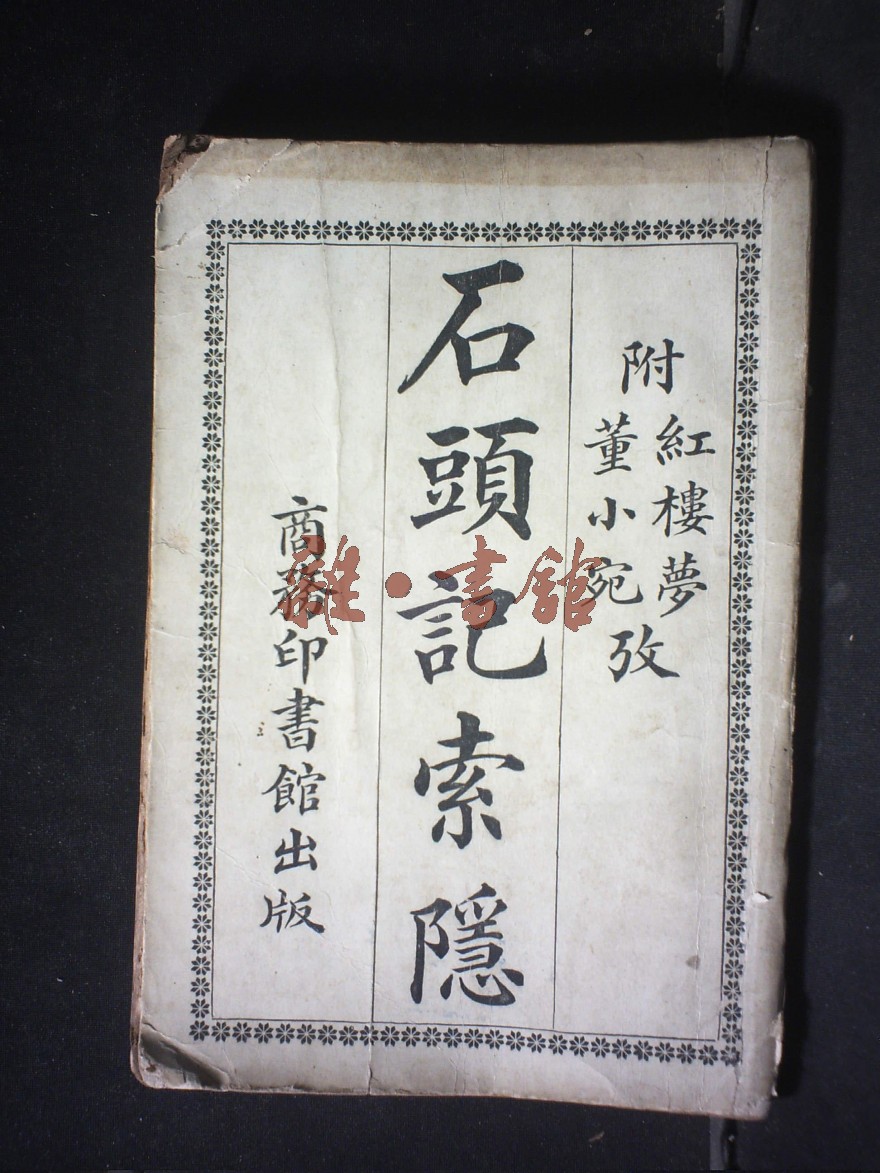 附
紅樓夢
董小宛攷
石頭記索隱
商務印書館出版
雜·書館